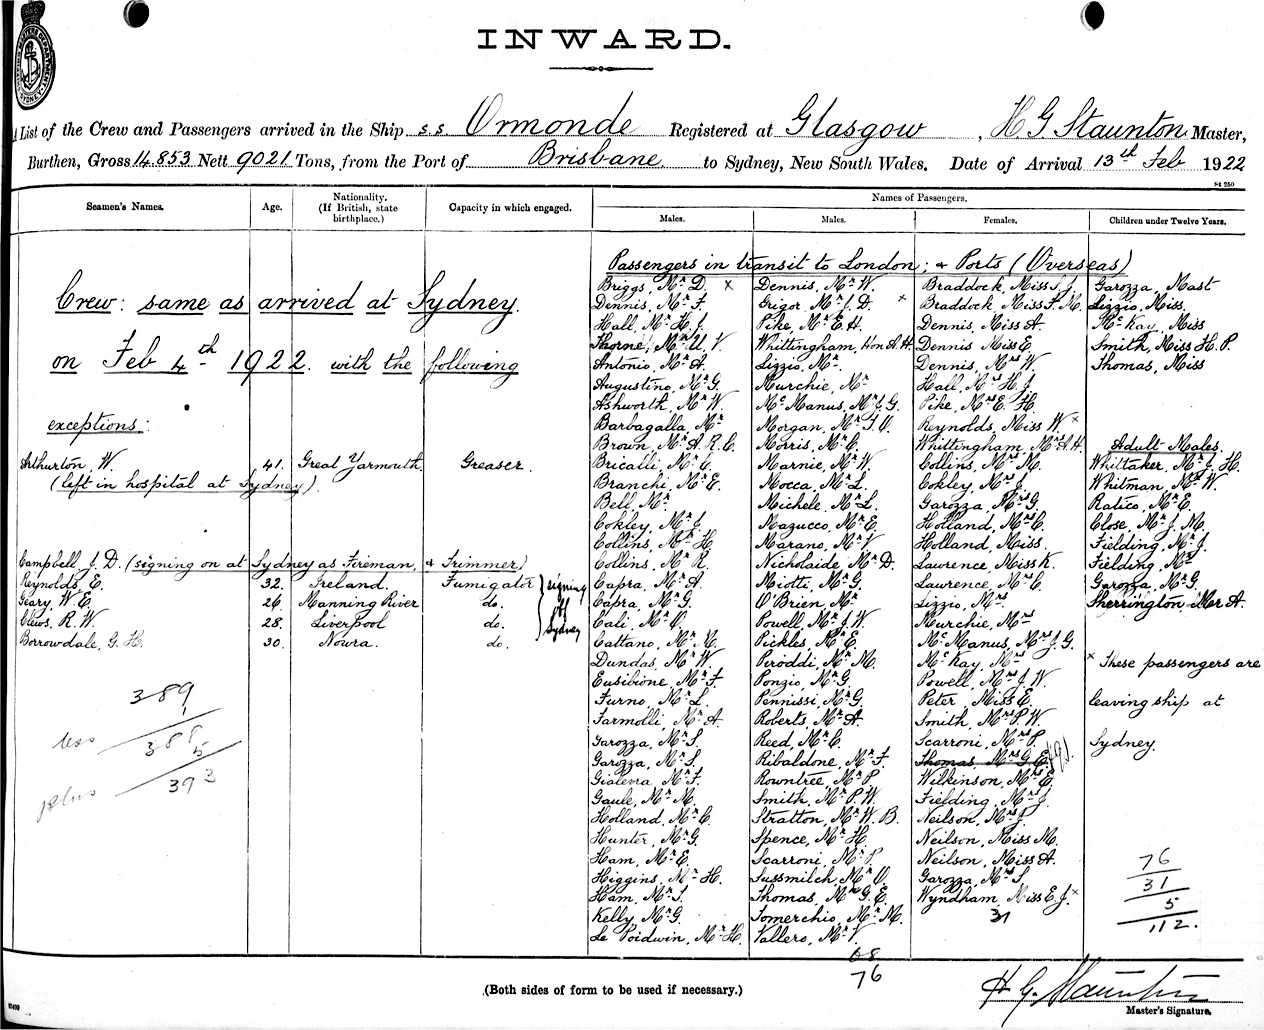 INWARD.
A List of the Crew and Passengers arrived in the Ship s.s. Ormonde Registered at Glasgow, H G Staunton Master,
Burthen, Gross 14.853 Nett 9021 Tons, from the Port of Brisbane to Sydney, New South Wales. Date of Arrival 13th Feb 1922
St 250
Seamen's Names. Age. Nationality. (If British, state birthplace.) Capacity in which engaged. Names of Passengers.
Males. Males. Females. Children under Twelve Years.
Crew: same as arrived at Sydney.
on Feb 4th 1922. with the following
exceptions:
Arthurton, W. 41. Great Yarmouth. Greaser.
(left in hospital at Sydney).
Campbell, J. D. (signing on at Sydney as Fireman, & Trimmer)
Reynolds, E. 32. Ireland. Fumigator
Geary, W. E. 26. Manning River do.
Clews, R. W. 28. Liverpool do.
Borrowdale, G. H. 30. Nowra. do.
signing
off
Sydney
389
1
less 388
5
plus 393
Passengers in transit to London; & Ports (Overseas)
Briggs, Mr D. x
Dennis, Mr F.
Hall, Mr H. J.
Thorne, Mr U. V.
Antonio, Mr A.
Augustino, Mr G.
Ashworth, Mr W.
Barbagalla, Mr
Brown, Mr A. R. C.
Bricalli, Mr C.
Branchi, Mr E.
Bell, Mr
Cokley, Mr J.
Collins, Mr H.
Collins, Mr R.
Capra, Mr A.
Capra, Mr G.
Cali, Mr C.
Cattano, Mr M.
Dundas, Mr W.
Eusibione, Mr F.
Furno, Mr L.
Farmolli, Mr A.
Garozza, Mr S.
Garozza, Mr S.
Gialena, Mr F.
Gaule, Mr M.
Holland, Mr C.
Hunter, Mr G.
Ham, Mr E.
Higgins, Mr H.
Ham, Mr S.
Kelly, Mr G.
Le Poidwin, Mr H.
Dennis, Mr W.
Grigor Mr J. D. x
Pike, Mr E. H.
Whittingham, Hon A. H.
Lizzio, Mr.
Murchie, Mr
McManus, Mr J. G.
Morgan, Mr T. V.
Morris, Mr C.
Marnie, Mr W.
Mocca, Mr L.
Michele, Mr L.
Mazucco, Mr E.
Marano, Mr V.
Nicholaide, Mr D.
Miotti, Mr G.
O'Brien, Mr
Powell, Mr J. W.
Pickles, Mr E.
Piroddi, Mr M.
Ponzio, Mr G.
Pennissi, Mr G.
Roberts, Mr A.
Reed, Mr C.
Ribaldone, Mr F.
Rowntree, Mr P.
Smith, Mr P. W.
Stratton, Mr W. B.
Spence, Mr H.
Scarroni, Mr P.
Sussmilch, Mr C.
Thomas, Mr G. E.
Tomerchio, Mr M.
Vallero, Mr V.
68
76
Braddock, Miss J. J.
Braddock Miss F. M.
Dennis, Miss A.
Dennis Miss E.
Dennis, Mrs W.
Hall, Mrs H. J.
Pike, Mrs E. H.
Reynolds, Miss W. x
Whittingham, Mrs A. H.
Collins, Mrs M.
Cokley, Mrs J.
Garozza, Mrs G.
Holland, Mrs C.
Holland, Miss.
Lawrence, Miss K.
Lawrence, Mrs C.
Lizzio, Mrs.
Murchie, Mrs
McManus, Mrs J. G.
McKay, Mrs
Powell, Mrs J. W.
Peter, Miss E.
Smith, Mrs P. W.
Scarroni, Mrs P.
Thomas, Mrs G. E.
Wilkinson, Mrs E.
Fielding, Mrs J.
Neilson, Mrs J.
Neilson, Miss M.
Neilson, Miss A.
Garozza, Mrs S.
Wyndham, Miss E. J. x
31
Garozza, Mast
Lizzio, Miss.
McKay, Miss
Smith, Miss H. P.
Thomas, Miss
Adult Males
Whittaker, Mr J. H.
Whitman, Mr W.
Ratico, Mr E.
Close, Mr J. M.
Fielding, Mr J.
Fielding, Mr
Garozza, Mr G.
Sherrington Mr A.
x These passengers are
leaving ship at
Sydney.
76
31
5
112.
(Both sides of form to be used if necessary.)
H G Staunton
Master's Signature.